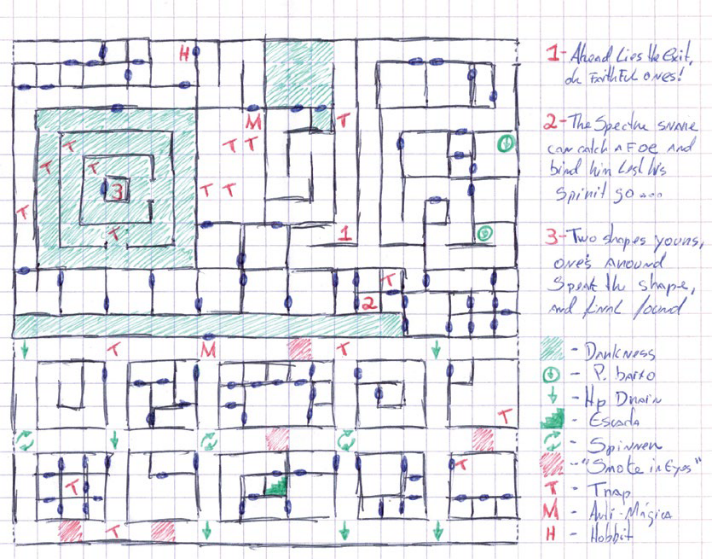 H
M T
T T T
T T
3 T T
T
T 1
T
2
T M T
T
T
T
T
1- Ahead Lies the Exit,
oh Faithful ones!
2- The Spectre snare
can catch a FOE and
bind him lest his
Spirit go...
3- Two shapes yours,
one's around
Speak the shape,
and final found
- Darkness
- P. baixo
- Hp Drain
- Escada
- Spinner
- "Smoke in Eyes"
T - Trap
M - Anti-Mágica
H - Hobbit